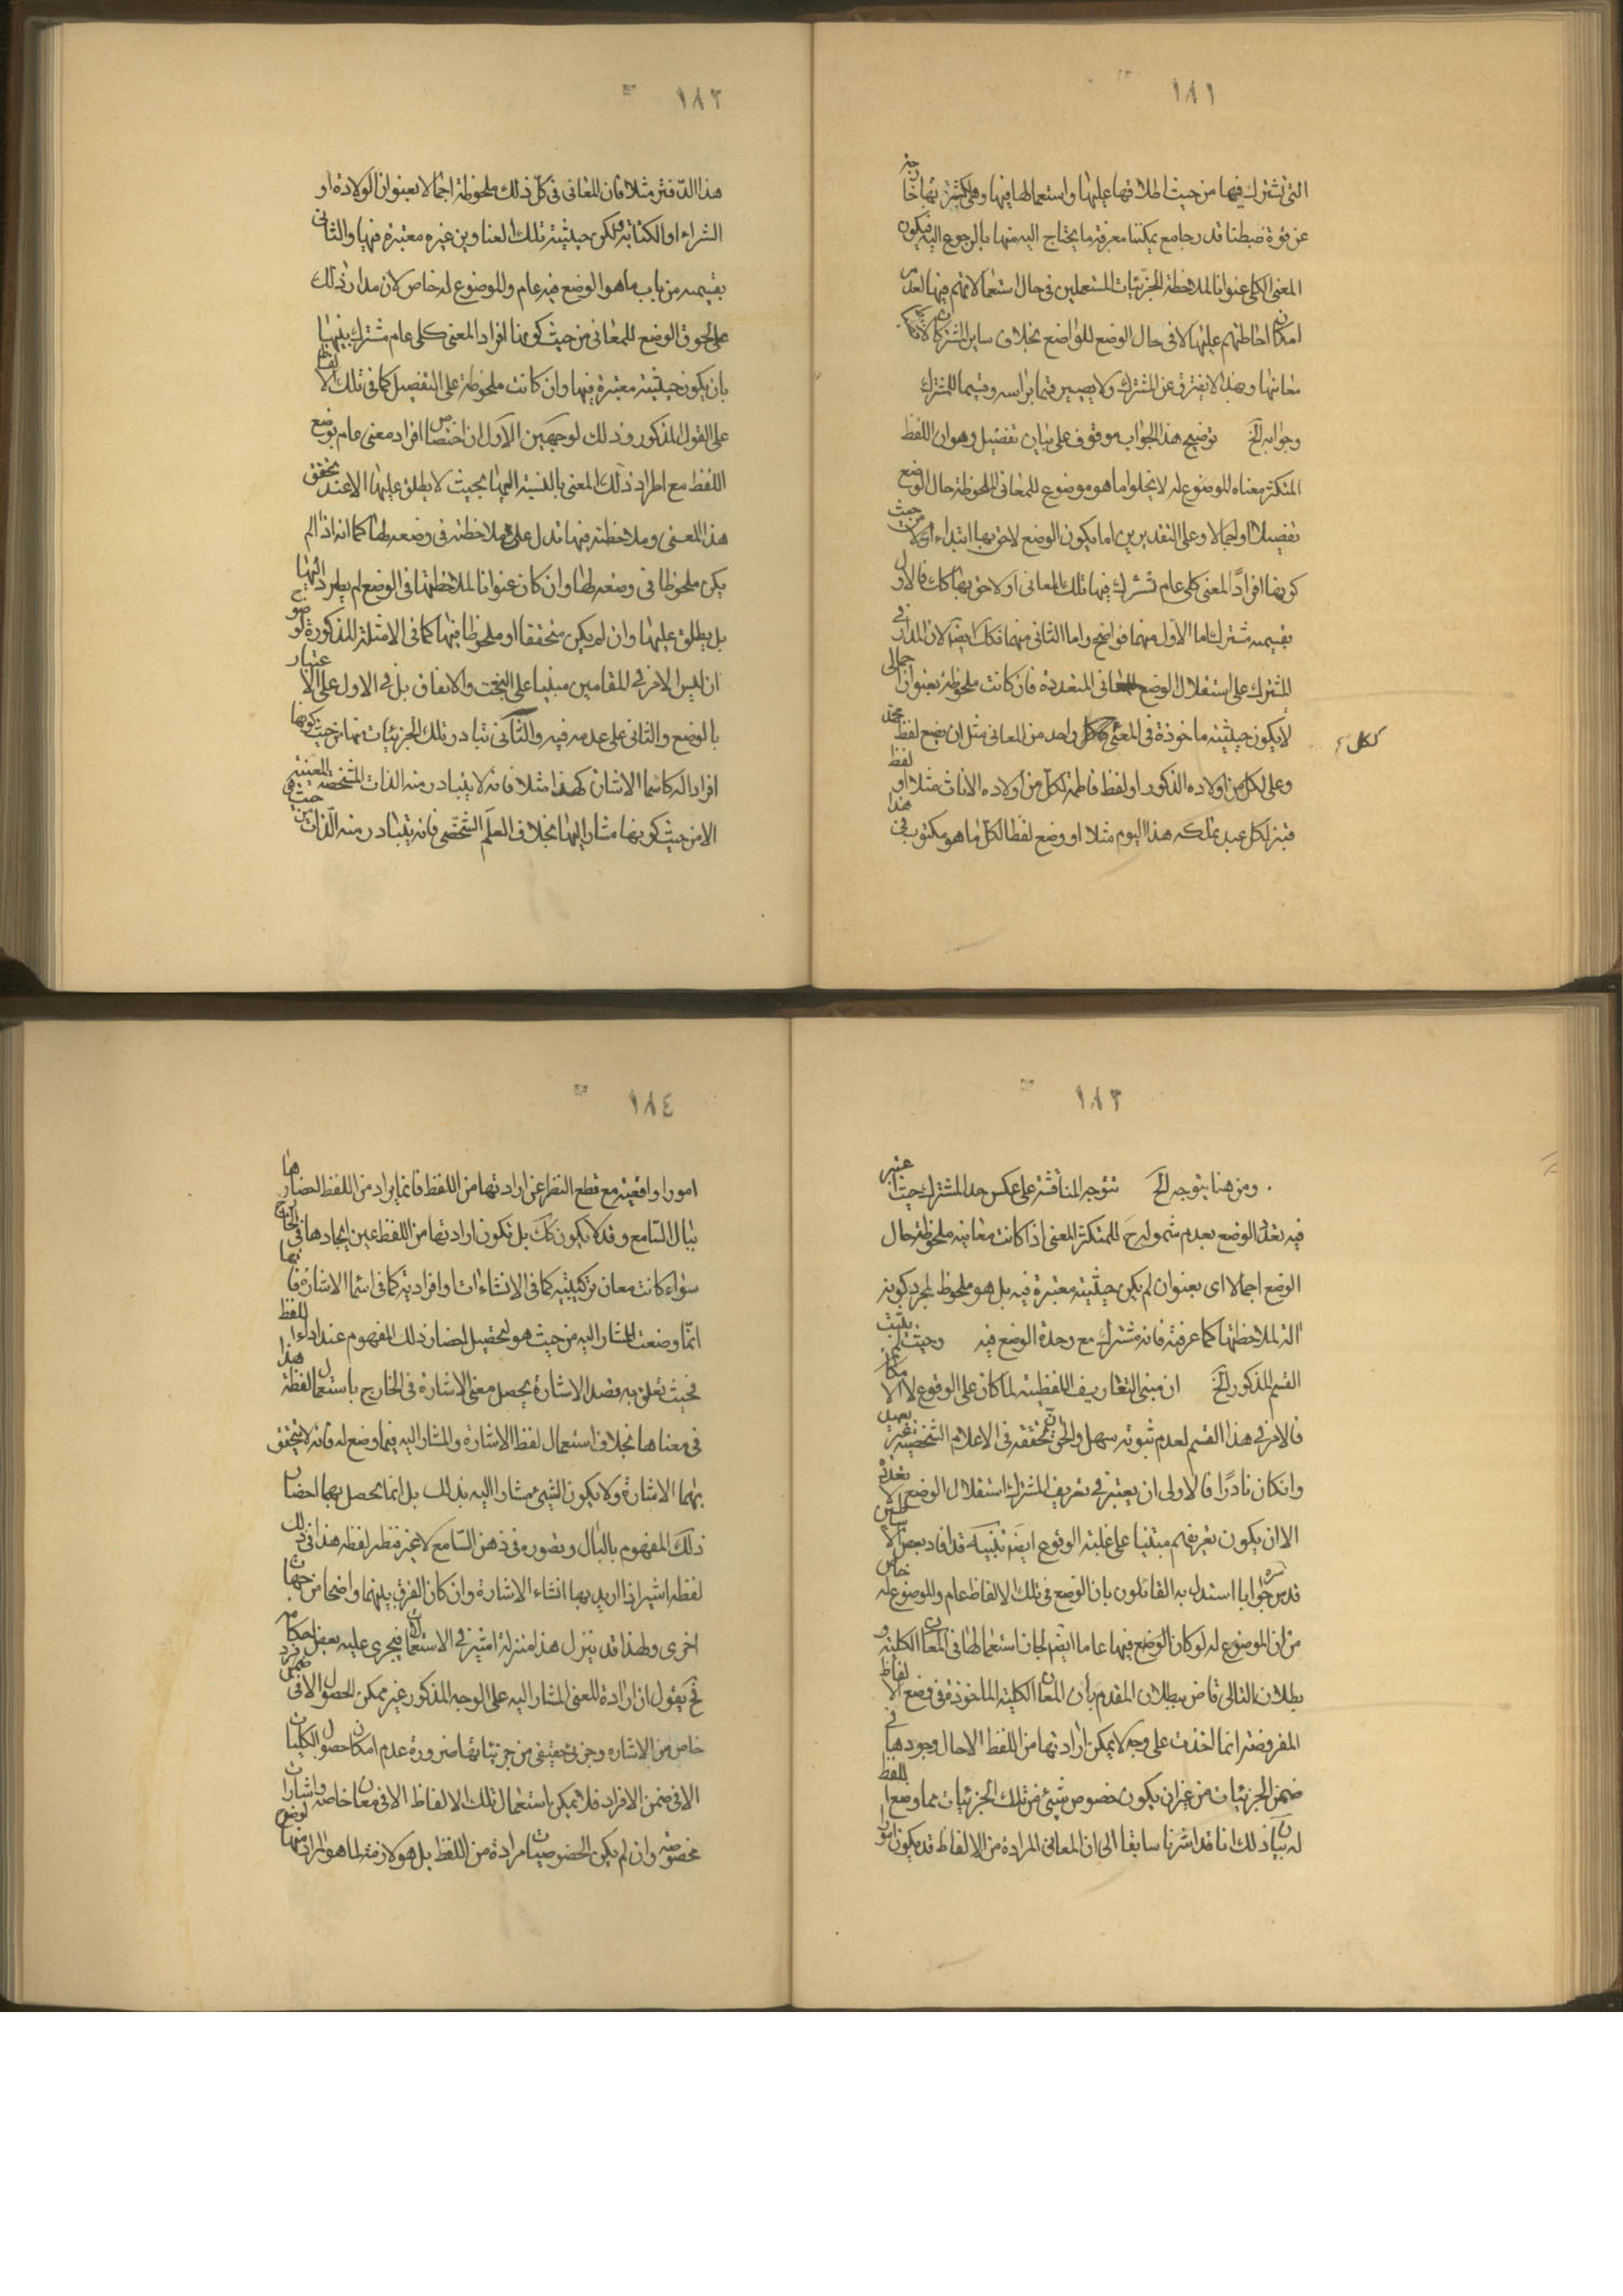 ١٨١
التى تشترك فيها من حيث اطلاقها عليها واستعمالها فيها وهى لكثرتها خارجة
عن قوة ضبطنا قدر جامع يمكننا معرفة ما يحتاج اليه منها بالرجوع اليه فيكون
المعنى الكلى عنوانا لملاحظة الجزئيات للمستعملين فى حال استعمالاتهم فيها لعدم
امكان احاطتهم عليها لا فى حال الوضع للواضع بخلاف ساير المشتركات
معانيها وهذا لا يفترق عن المشترك ولا يصير قسما براسه وقسيما للمشترك
وجوابه الخ توضيح هذا الجواب موقوف على بيان تفصيل وهو ان اللفظ
المتكثر معناه للموضوع له لا يخلو اما هو موضوع للمعانى الملحوظة حال الوضع
تفصيلا او اجمالا وعلى التقديرين اما يكون الوضع لاحق بها ابتداء لا من حيث
كونها افرادًا لمعنى كلى عام تشترك فيها تلك المعانى او لاحق بها كك فالاول
بقسيمه مشترك اما الاول منهما فواضح واما الثانى منهما فكك ايضا لان المدار فى
المشترك على استقلال الوضع للمعانى المتعددة فان كانت ملحوظة بعنوان اجمالى
لا يكون حيثيته ماخوذة فى المعنى لكل واحد من المعانى مثل ان يضع لفظ محمد
لكل
وعلى لكل من اولاده الذكور او لفظ فاطمة لكل من اولاده الاناث مثلا او لفظ
قنبر لكل عبد يملكه هذا اليوم مثلا او وضع لفظا لكل ما هو مكتوب فى هذا
١٨٢
هذا الدفتر مثلا فان المعانى فى كل ذلك ملحوظة اجمالا بعنوان الولادة او
الشراء او الكتابة ولكن حيثية تلك العناوين غيره معتبرة فيها والثانى
بقسيمه من باب ما هو الوضع فيه عام والموضوع له خاص لان مدار ذلك
على لحوق الوضع للمعانى من حيث كونها افراد المعنى كلى عام مشترك بينها
بان يكون حيثيته معتبرة فيها وان كانت ملحوظة على التفصيل كما فى تلك الالفاظ
على القول المذكور وذلك لوجهين الاول ان اختصاص افراد معنى عام بوضع
اللفظ مع اطراد ذلك المعنى بالنسبة اليها بحيث لا يطلق عليها الا عند تحقق
هذا المعنى وملاحظته فيها تدل على ملاحظته فى وضعه لها كما انه اذا لم
يكن ملحوظا فى وضعه لها وان كان عنوانا لملاحظتها فى الوضع لم يطرد اليها
بل يطلق عليها وان لم يكن متحققا او ملحوظا فيها كما فى الامثلة المذكورة
ان ليس الامر فى المقامين مبنيا على البخت والاتفاق بل فى الاول على الاعتبار
بالوضع والثانى على عدمه فيه والثانى تبادر تلك الجزئيات منها من حيث كونها
افراد اله كاسماء الاشارة كهذا مثلا فانه لا يتبادر منه الذات المشخصه المعينة
الا من حيث كونها مشارا اليها بخلاف العلم الشخصى فانه يتبادر منه الذات من حيث هى
١٨٣
ومن هنا يتوجه الخ تتوجه المناقشة على عكس حد المشترك حيث اعتبر
فيه تعدد الوضع بعدم شموله ح للمتكثر المعنى اذا كانت معانيه ملحوظة حال
الوضع اجمالا اى بعنوان لم يكن حيثيته معتبرة فيه بل هو ملحوظ لمجرد كونه
الة لملاحظتها كما عرفته فانه مشترك مع وحدة الوضع فيه وحيث لم يثبت
القسم المذكور الخ ان مبنى التعاريف اللفظية لما كان على الوقوع لا الامكان
فالامر فى هذا القسم لعدم ثبوته سهل والحق ان تحققه فى الاعلام الشخصية غير بعيد
وان كان نادرًا فالاولى ان يعتبر فى تعريف المشترك استقلال الوضع لا تعدده
الا ان يكون تعريفهم مبتنيا على غلبة الوقوع ايضا تنبيه قد افاد بعض الاساطين
قدس سره جوابا استدل به القائلون بان الوضع فى تلك الالفاظ عام والموضوع له خاص
من ان الموضوع له لو كان الوضع فيها عاما ايضا لجاز استعمالها فى المعانى الكلية و
بطلان التالى قاض ببطلان المقدم بان المعانى الكلية الماخوذة فى وضع الالفاظ
المفروضة انما اخذت على وجه لا يمكن ارادتها من اللفظ الا حال وجودها فى
ضمن الجزئيات من غير ان يكون خصوص شيئ من تلك الجزئيات مما وضع اللفظ
له بيان ذلك انا قد اشرنا سابقا الى ان المعانى المرادة من الالفاظ قد يكون امورا
١٨٤
امورا واقعية مع قطع النظر عن ارادتها من اللفظ فانما يراد من اللفظ احضارها
ببال السامع وقد لا يكون كك بل تكون ارادتها من اللفظ عين ايجادها فى الخارج
سواء كانت معان تركيبية كما فى الانشاءات او افرادية كما فى اسماء الاشارة فانها
انما وضعت للمشار اليه من حيث هو لتحصيل احضار ذلك المفهوم عند اداء اللفظ
فحيث تعلق به قصد الاشارة يحصل معنى الاشارة فى الخارج باستعمال لفظة هذا
فى معناها بخلاف استعمال لفظ الاشارة والمشار اليه فيما وضع له فانه لا يتحقق
بهما الاشارة ولا يكون الشيئ مشارا اليه بذلك بل انما يحصل بهما احضار
ذلك المفهوم بالبال وتصوره فى ذهن السامع لا غير فنظير لفظة هذا فى ذلك
لفظة اشير اذا اريد بها انشاء الاشارة وان كان الفرق بينهما واضحا من جهات
اخرى ولهذا قد ينزل هذا منزلة اشير فى الاستعمال فيجرى عليه بعض احكامه
فح يقول ان ارادة المعنى المشار اليه على الوجه المذكور غير ممكن الحصول الا فى ضمن فرد
خاص من الاشاره وجزئى حقيقى من جزئياتها ضرورة عدم امكان حصول الكليات
الا فى ضمن الافراد فلا يمكن استعمال تلك الالفاظ الا فى معان خاصة واشارات
مخصوصة وان لم يكن الخصوصيات مرادة من اللفظ بل هو لازمة لما هو المراد منها